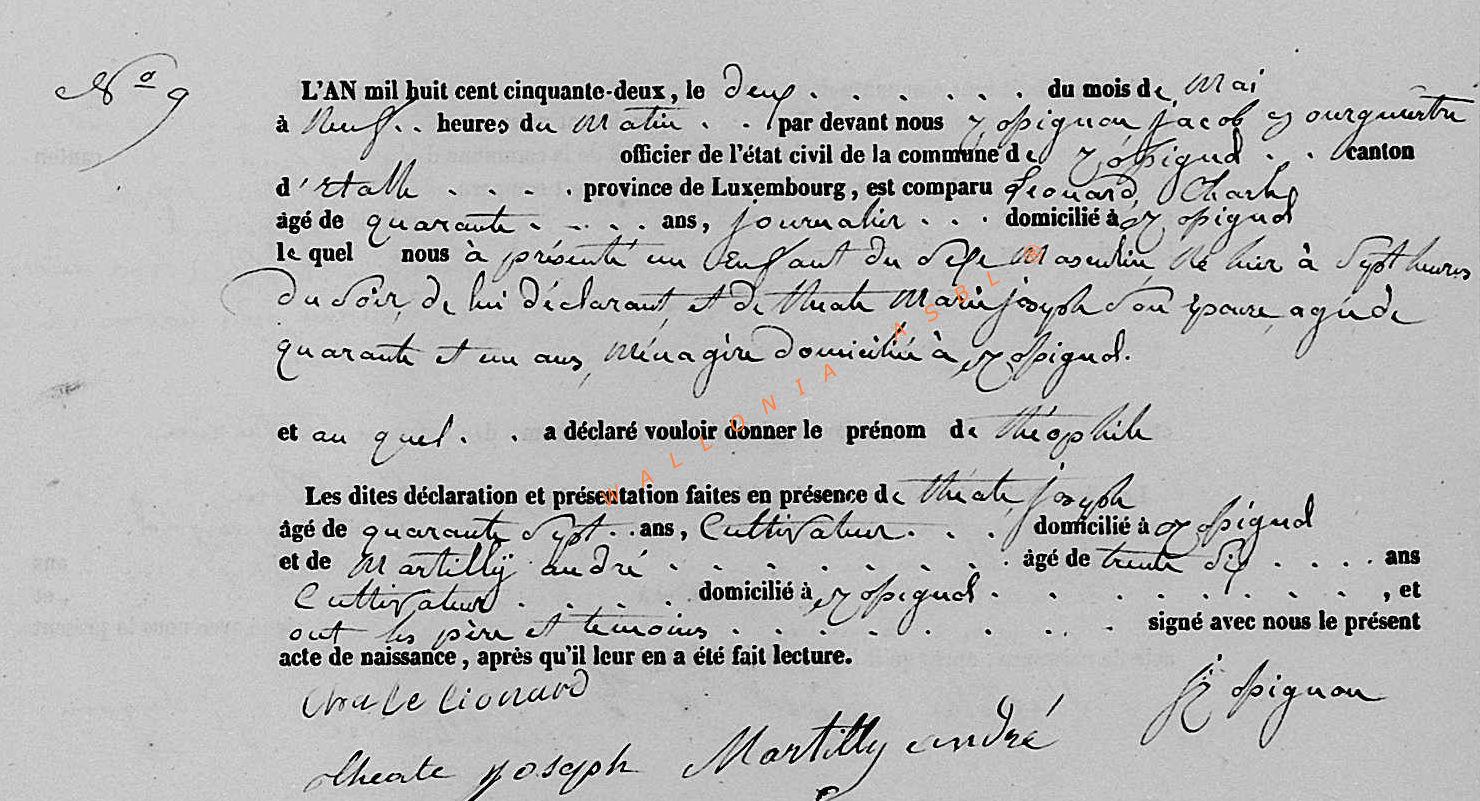 Nº 9
L'AN mil huit cent cinquante-deux, le deux . . . . . . du mois de Mai
à Neuf . . heures du Matin . . par devant nous Jacob Bourgmestre
officier de l'état civil de la commune de . . canton
d'Etalle . . . . province de Luxembourg, est comparu Léonard, Charles
âgé de quarante . . . . ans, journalier . . . domicilié à
le quel nous à présenté un Enfant du Sexe Masculin, Né hier à Sept heures
du Soir, de lui déclarant, et de théate Marie joseph Son Epouse, agée de
quarante et un ans, Ménagère domiciliée à
et au quel . . a déclaré vouloir donner le prénom de théophile
Les dites déclaration et présentation faites en présence de théate joseph
âgé de quarante Sept . . ans, Cultivateur . . . domicilié à
et de Martilly andré . . . . . . . . . âgé de trente Six . . . . ans
Cultivateur . . . . domicilié à . . . . . . . . , et
ont les père et témoins . . . . . . . . signé avec nous le présent
acte de naissance, après qu'il leur en a été fait lecture.
Léonard
theate joseph Martilly andré
WALLONIA ASBL ®